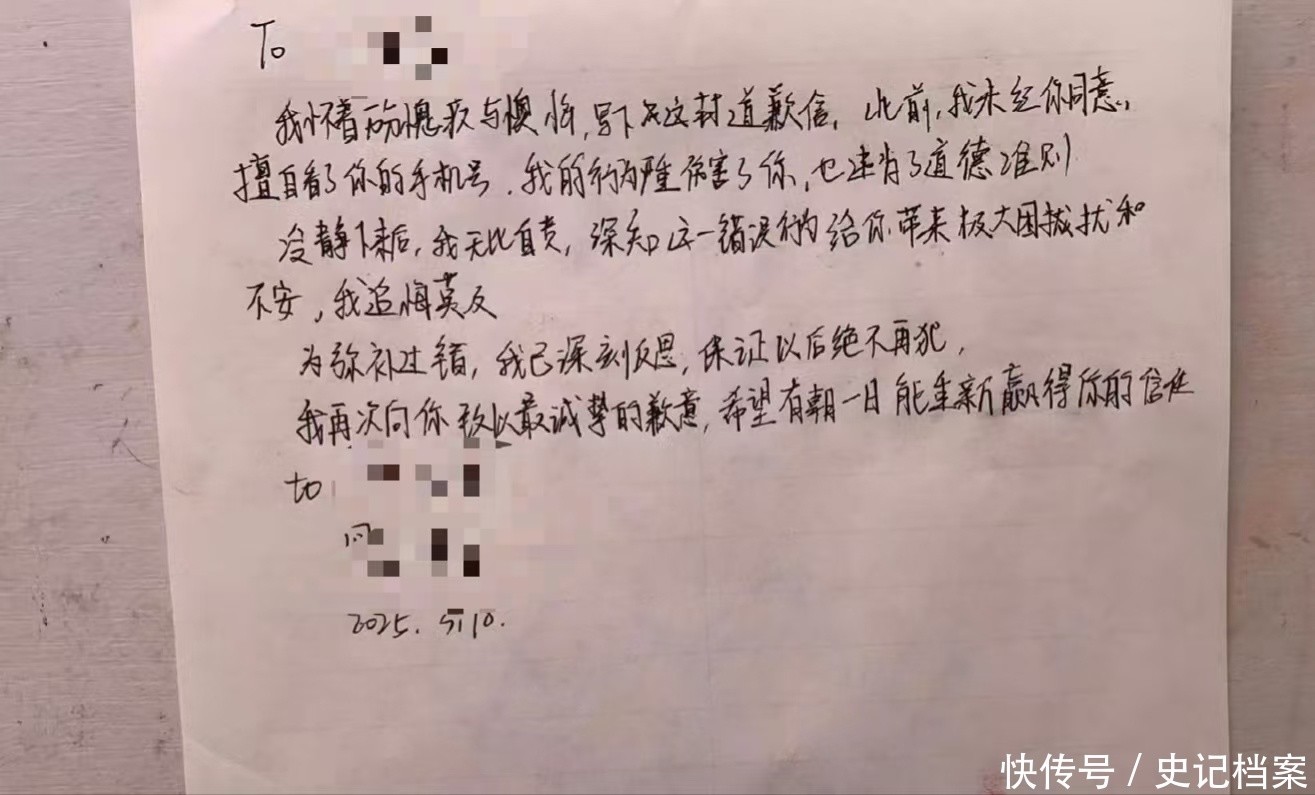 To
我怀着万分愧疚与懊悔,写下这封道歉信. 此前,我未经你同意,
擅自看了你的手机号.我的行为严重伤害了你,也违背了道德准则
冷静下来后,我无比自责,深知这一错误行为给你带来极大困扰和
不安,我追悔莫及
为弥补过错,我已深刻反思,保证以后绝不再犯,
我再次向你致以最诚挚的歉意,希望有朝一日能重新赢得你的信任
to
2025. 5/10.
快传号 / 史记档案